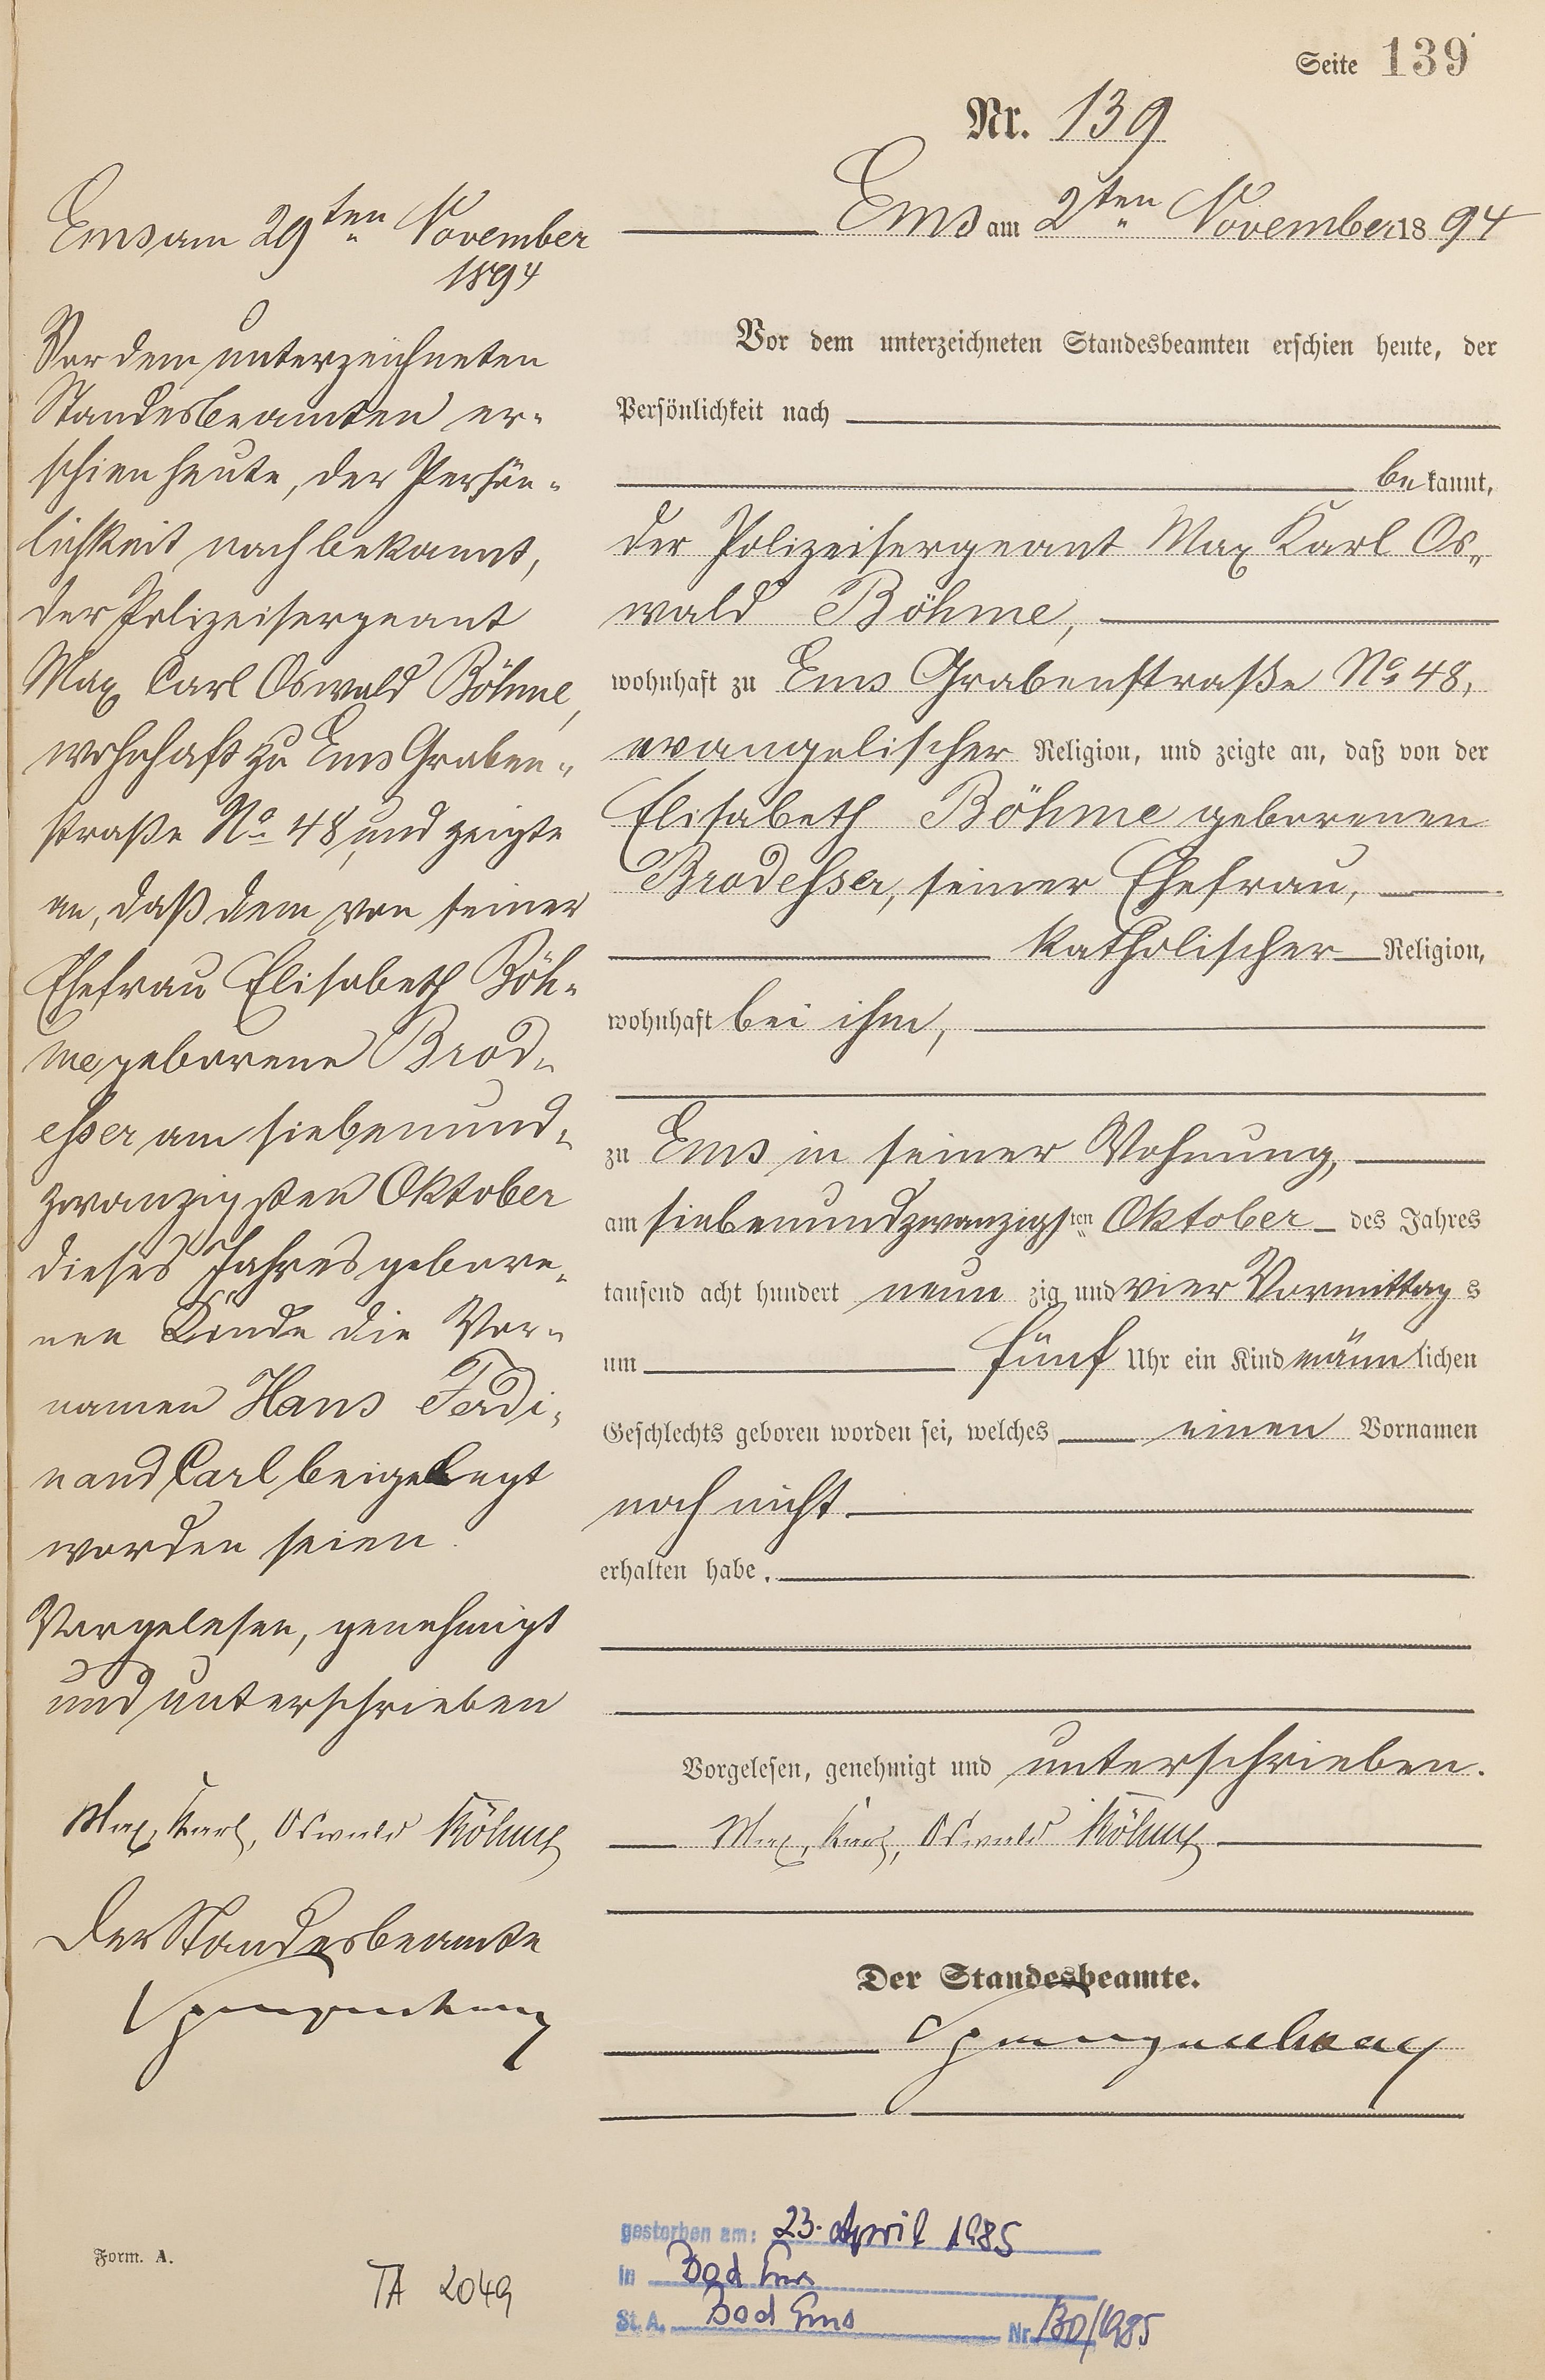 Seite 139
Nr. 139
Ems am 2ten November 1894
Vor dem unterzeichneten Standesbeamten erschien heute, der
Persönlichkeit nach
bekannt,
der Polizeisergeant Max Karl Os-
wald Böhme,
wohnhaft zu Ems Grabenstraße No 48,
evangelischer Religion, und zeigte an, daß von der
Elisabeth Böhme geborenen
Brodesser, seiner Ehefrau,
katholischer Religion,
wohnhaft bei ihm,
zu Ems in seiner Wohnung,
am siebenundzwanzigsten Oktober des Jahres
tausend acht hundert neunzig und vier Vormittags
um fünf Uhr ein Kind männlichen
Geschlechts geboren worden sei, welches einen Vornamen
noch nicht
erhalten habe.
Vorgelesen, genehmigt und unterschrieben.
Max, Karl, Oswald Böhme
Der Standesbeamte.
Ems am 29ten November
1894
Vor dem unterzeichneten
Standesbeamten er-
schien heute, der Persön-
lichkeit nach bekannt,
der Polizeisergeant
Max Carl Oswald Böhme,
wohnhaft zu Ems Graben-
straße No 48, und zeigte
an, daß dem von seiner
Ehefrau Elisabeth Böh-
me geborene Brod-
esser am siebenund-
zwanzigsten Oktober
dieses Jahres gebore-
nen Kinde die Vor-
namen Hans Ferdi-
nand Carl beigelegt
worden seien.
Vorgelesen, genehmigt
und unterschrieben
Max, Karl, Oswald Böhme
Der Standesbeamte
Form. A.
TA 2049
gestorben am: 23. April 1985
in Bad Ems
St. A. Bad Ems Nr. 130/1985